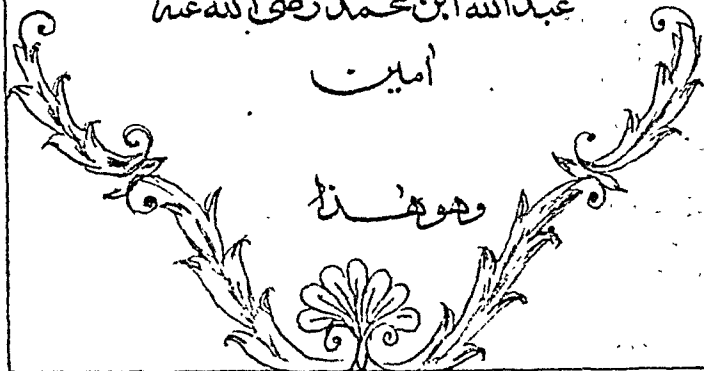 عبد الله ابن محمد رضى الله عنه
امين
وهو هذا